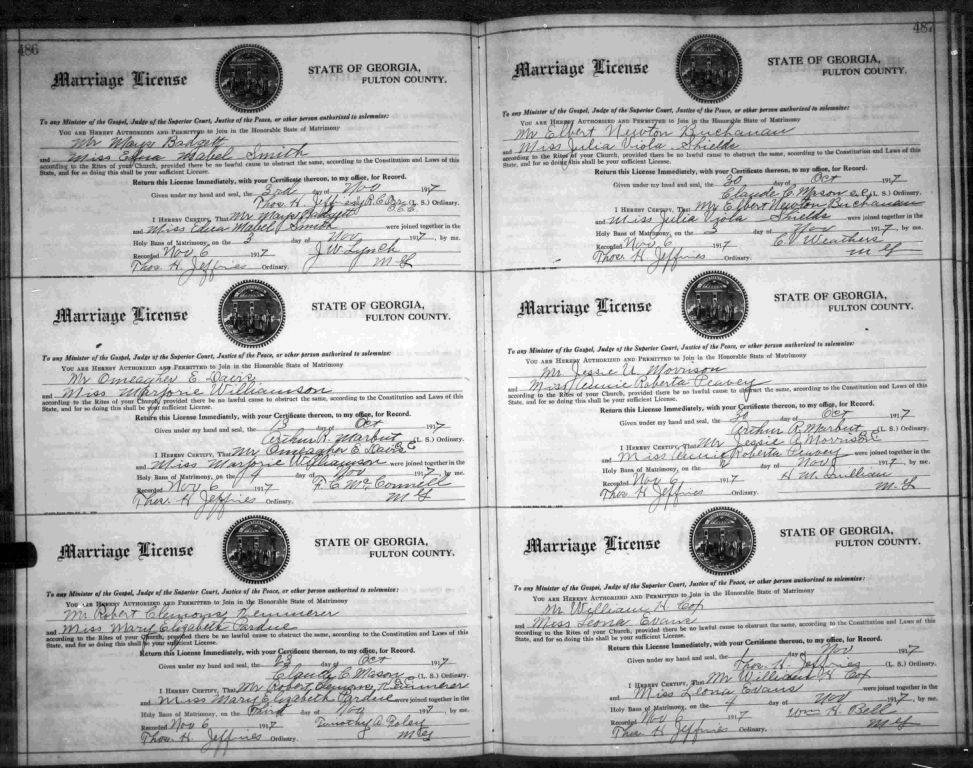 486
Marriage License
STATE OF GEORGIA,
FULTON COUNTY.
To any Minister of the Gospel, Judge of the Superior Court, Justice of the Peace, or other person authorized to solemnize:
YOU ARE HEREBY AUTHORIZED AND PERMITTED to Join in the Honorable State of Matrimony
Mr Mayse Badgett
and Miss Edna Mabel Smith
according to the Rites of your Church, provided there be no lawful cause to obstruct the same, according to the Constitution and Laws of this
State, and for so doing this shall be your sufficient License.
Return this License Immediately, with your Certificate thereon, to my office, for Record.
Given under my hand and seal, the 3rd day of Nov 1917
Thos. H. Jeffries (L. S.) Ordinary.
I HEREBY CERTIFY, That Mr Mayse Badgett
and Miss Edna Mabel Smith were joined together in the
Holy Bans of Matrimony, on the 3 day of Nov 1917, by me.
Recorded Nov 6 1917 J. W. Lynch
Thos. H. Jeffries Ordinary. M G
Marriage License
STATE OF GEORGIA,
FULTON COUNTY.
To any Minister of the Gospel, Judge of the Superior Court, Justice of the Peace, or other person authorized to solemnize:
YOU ARE HEREBY AUTHORIZED AND PERMITTED to Join in the Honorable State of Matrimony
Mr Omeagher E. Davis
and Miss Marjorie Williamson
according to the Rites of your Church, provided there be no lawful cause to obstruct the same, according to the Constitution and Laws of this
State, and for so doing this shall be your sufficient License.
Return this License Immediately, with your Certificate thereon, to my office, for Record.
Given under my hand and seal, the 13 day of Oct 1917
Arthur R. Marbut (L. S.) Ordinary.
I HEREBY CERTIFY, That Mr Omeagher E. Davis
and Miss Marjorie Williamson were joined together in the
Holy Bans of Matrimony, on the 4 day of Nov 1917, by me.
Recorded Nov 6 1917 F. C. McConnell
Thos. H. Jeffries Ordinary. M G
Marriage License
STATE OF GEORGIA,
FULTON COUNTY.
To any Minister of the Gospel, Judge of the Superior Court, Justice of the Peace, or other person authorized to solemnize:
YOU ARE HEREBY AUTHORIZED AND PERMITTED to Join in the Honorable State of Matrimony
Mr Robert Clemons Kemmerer
and Miss Mary Elizabeth Pardue
according to the Rites of your Church, provided there be no lawful cause to obstruct the same, according to the Constitution and Laws of this
State, and for so doing this shall be your sufficient License.
Return this License Immediately, with your Certificate thereon, to my office, for Record.
Given under my hand and seal, the 23 day of Oct 1917
Claude C. Mason (L. S.) Ordinary.
I HEREBY CERTIFY, That Mr Robert Clemons Kemmerer
and Miss Mary Elizabeth Pardue were joined together in the
Holy Bans of Matrimony, on the Third day of Nov 1917, by me.
Recorded Nov 6 1917 Timothy A. Foley
Thos. H. Jeffries Ordinary. M G
487
Marriage License
STATE OF GEORGIA,
FULTON COUNTY.
To any Minister of the Gospel, Judge of the Superior Court, Justice of the Peace, or other person authorized to solemnize:
YOU ARE HEREBY AUTHORIZED AND PERMITTED to Join in the Honorable State of Matrimony
Mr Elbert Newton Buchanan
and Miss Julia Viola Shields
according to the Rites of your Church, provided there be no lawful cause to obstruct the same, according to the Constitution and Laws of this
State, and for so doing this shall be your sufficient License.
Return this License Immediately, with your Certificate thereon, to my office, for Record.
Given under my hand and seal, the 30 day of Oct 1917
Claude C. Mason (L. S.) Ordinary.
I HEREBY CERTIFY, That Mr Elbert Newton Buchanan
and Miss Julia Viola Shields were joined together in the
Holy Bans of Matrimony, on the 3 day of Nov 1917, by me.
Recorded Nov 6 1917 C. V. Weathers
Thos. H. Jeffries Ordinary. M G
Marriage License
STATE OF GEORGIA,
FULTON COUNTY.
To any Minister of the Gospel, Judge of the Superior Court, Justice of the Peace, or other person authorized to solemnize:
YOU ARE HEREBY AUTHORIZED AND PERMITTED to Join in the Honorable State of Matrimony
Mr Jessie U. Morrison
and Miss Roberta Peavey
according to the Rites of your Church, provided there be no lawful cause to obstruct the same, according to the Constitution and Laws of this
State, and for so doing this shall be your sufficient License.
Return this License Immediately, with your Certificate thereon, to my office, for Record.
Given under my hand and seal, the 30 day of Oct 1917
Arthur R. Marbut (L. S.) Ordinary.
I HEREBY CERTIFY, That Mr Jessie Morrison
and Miss Roberta Peavey were joined together in the
Holy Bans of Matrimony, on the day of Nov 1917, by me.
Recorded Nov 6 1917 H. M. Quillian
Thos. H. Jeffries Ordinary. M. G
Marriage License
STATE OF GEORGIA,
FULTON COUNTY.
To any Minister of the Gospel, Judge of the Superior Court, Justice of the Peace, or other person authorized to solemnize:
YOU ARE HEREBY AUTHORIZED AND PERMITTED to Join in the Honorable State of Matrimony
Mr William H Cox
and Miss Leona Evans
according to the Rites of your Church, provided there be no lawful cause to obstruct the same, according to the Constitution and Laws of this
State, and for so doing this shall be your sufficient License.
Return this License Immediately, with your Certificate thereon, to my office, for Record.
Given under my hand and seal, the 1 day of Nov 1917
Thos. H. Jeffries (L. S.) Ordinary.
I HEREBY CERTIFY, That Mr William H Cox
and Miss Leona Evans were joined together in the
Holy Bans of Matrimony, on the 4 day of Nov 1917, by me.
Recorded Nov 6 1917 Wm H. Bell
Thos. H. Jeffries Ordinary. M G